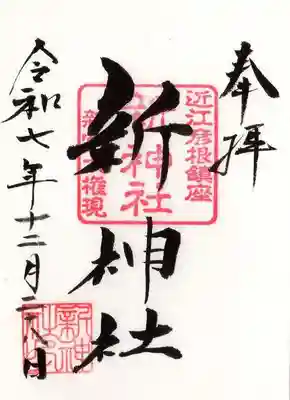 奉拝
近江彦根鎮座
新神社
権現
新神社
令和七年十二月二八日